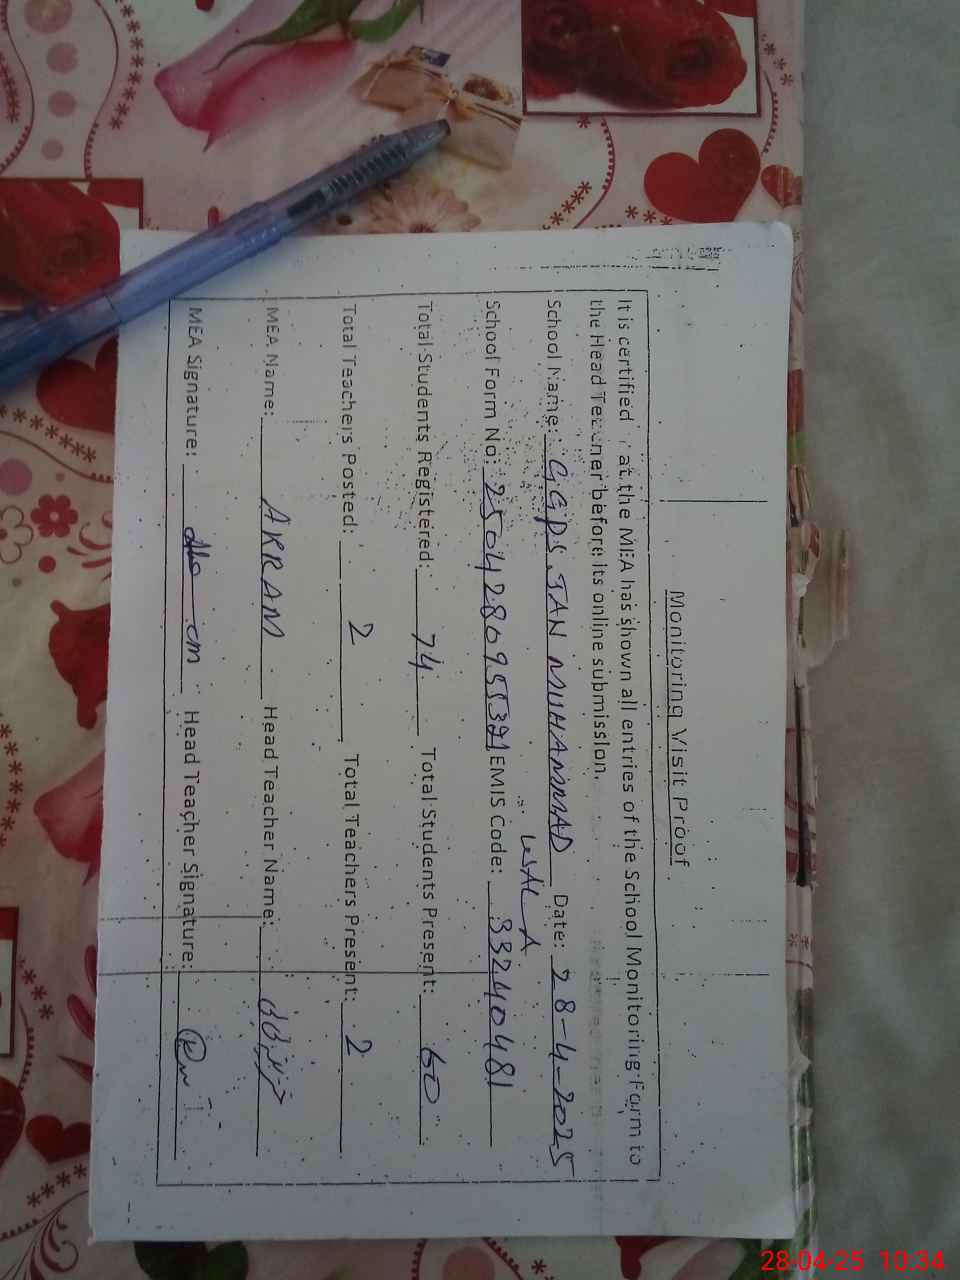 Monitoring Visit Proof
It is certified at the MEA has shown all entries of the School Monitoring Form to
the Head Teacher before its online submission.
School Name: GGPS JAN MUHAMMAD Date: 28-4-2025
School Form No: 25042809553 EMIS Code: 33240481
Total Students Registered: 74 Total Students Present: 60
Total Teachers Posted: 2 Total Teachers Present: 2
MEA Name: AKRAM Head Teacher Name:
MEA Signature: Head Teacher Signature:
28-04-25 10:34